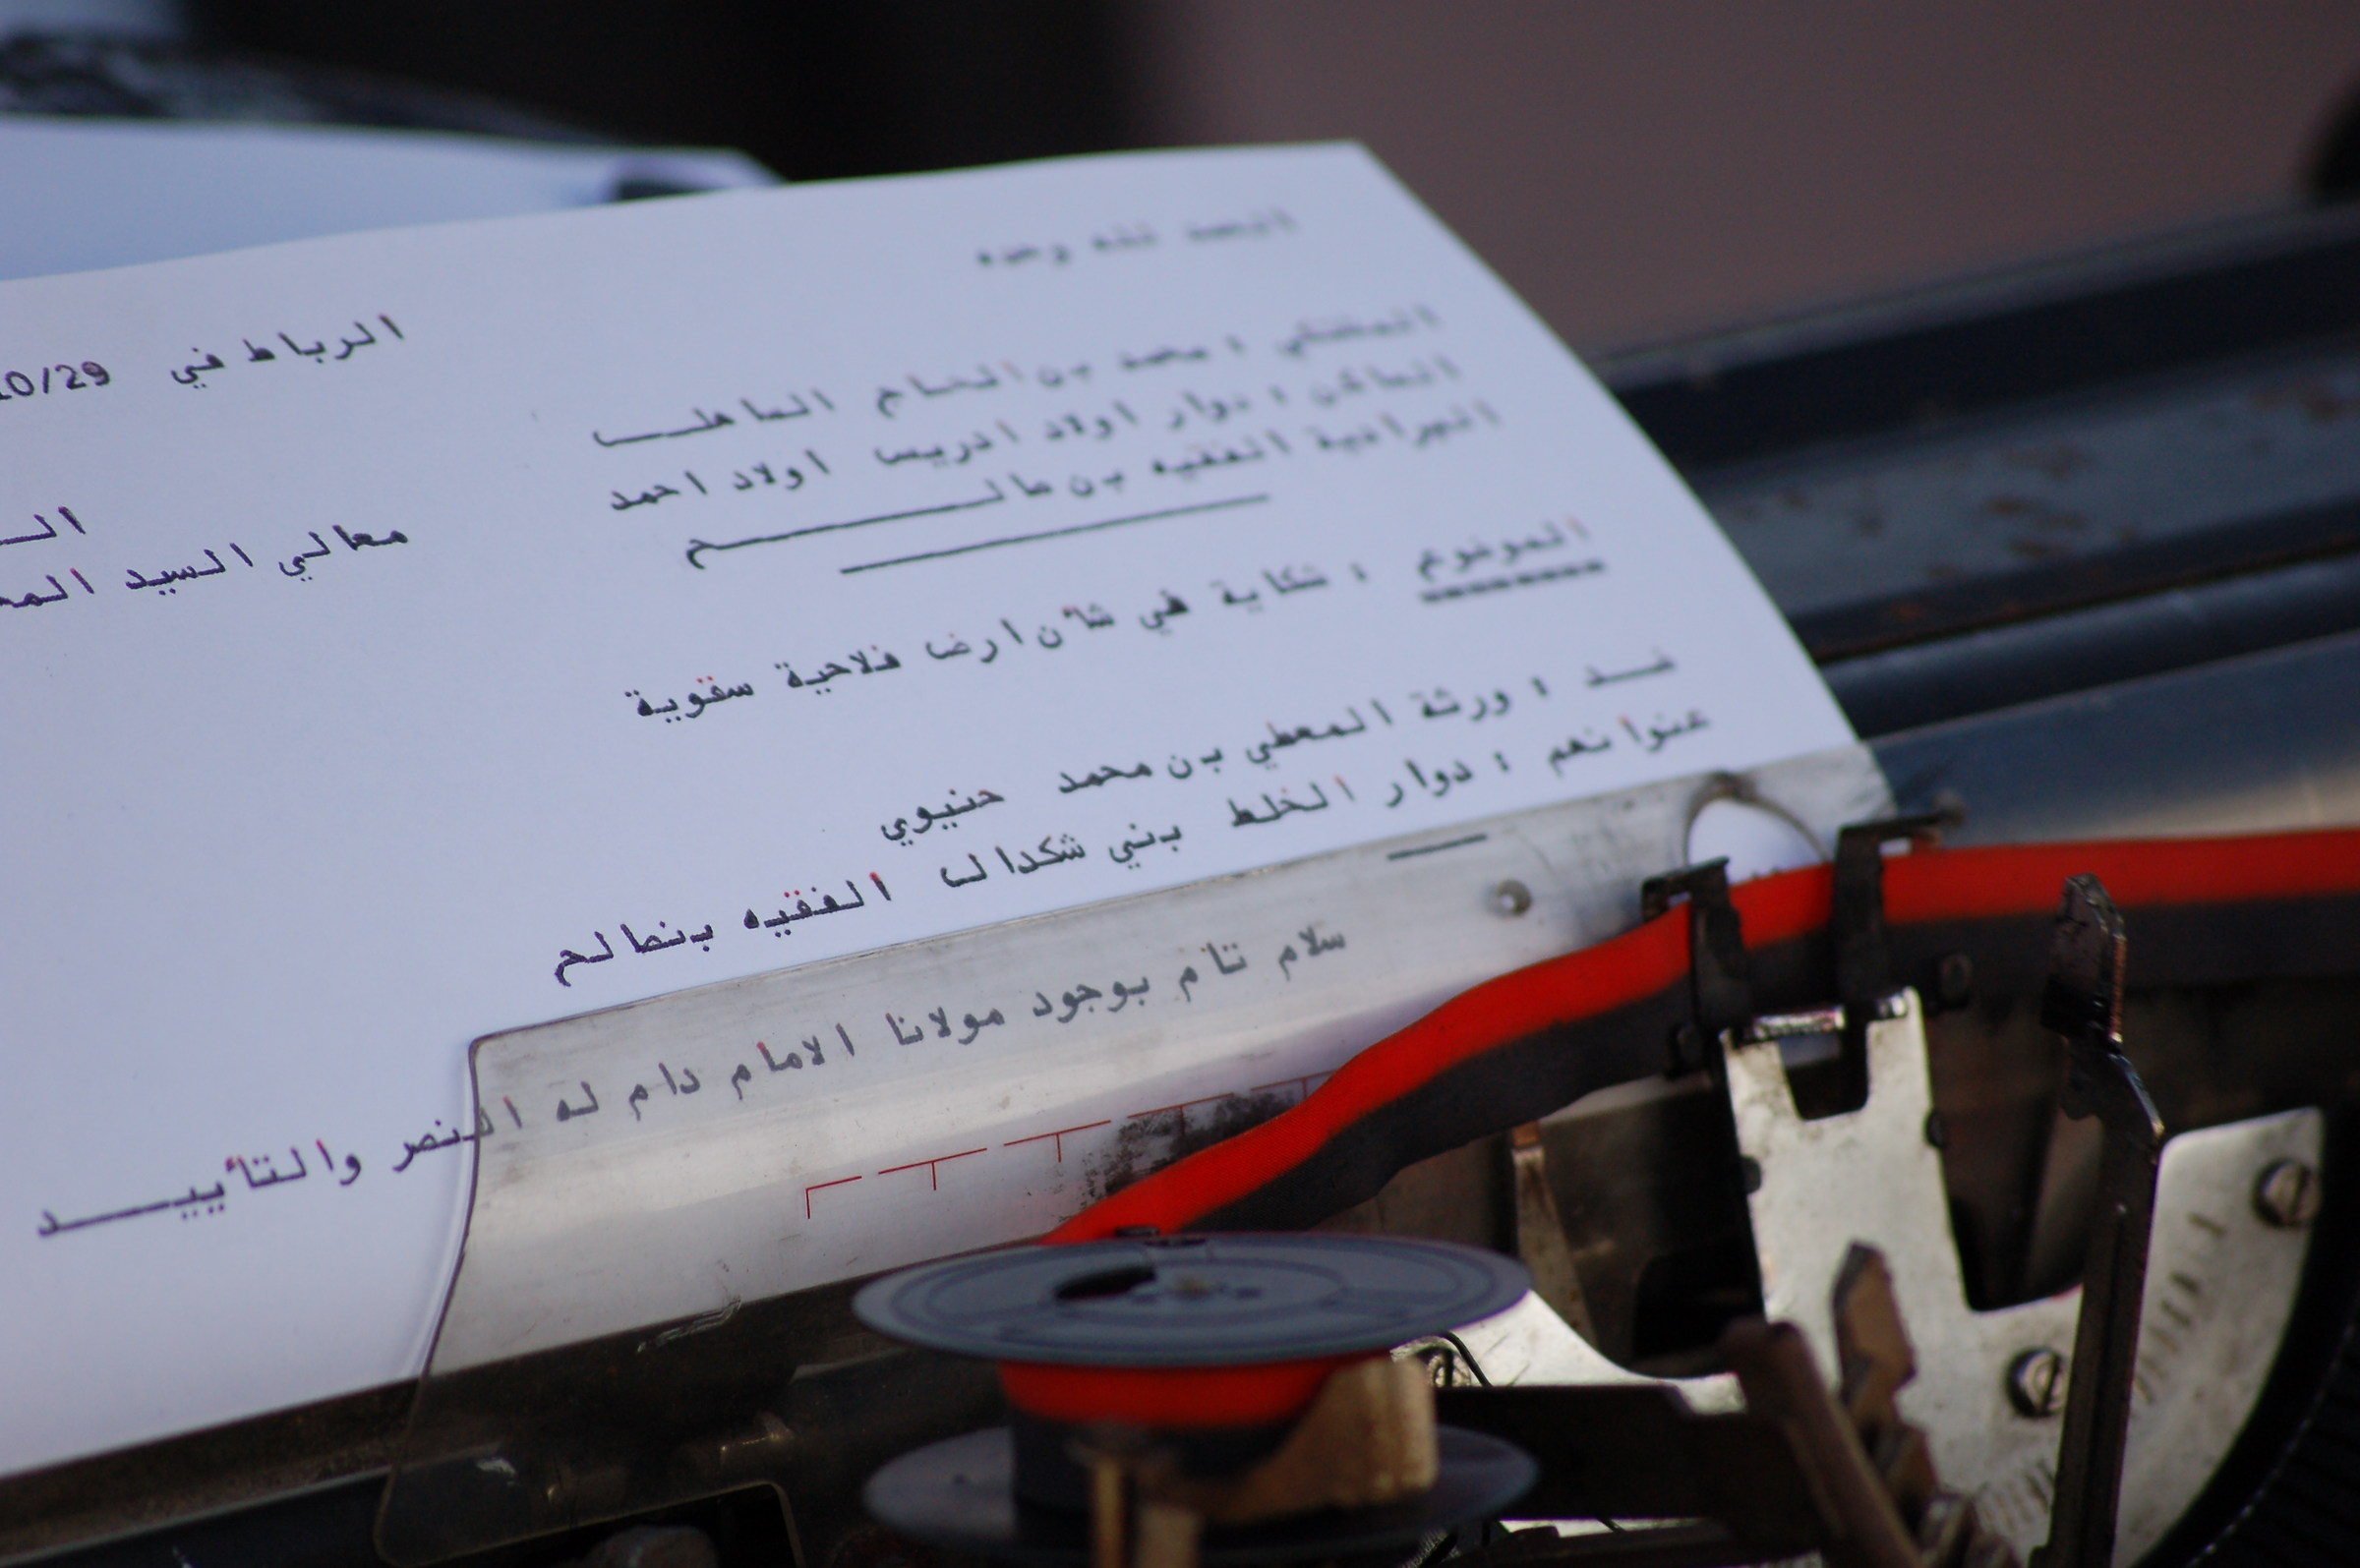 الحمد لله وحده
الرباط في 10/29
المشتكي : محمد بن الحاج
الساكن : دوار اولاد ادريس اولاد احمد
البرادية الفقيه بن صالـــــح
الـ
معالي السيد المحـ
الموضوع : شكاية في شأن ارض فلاحية سقوية
ضــد : ورثة المعطي بن محمد حنيوي
عنوانهم : دوار الخلط بني شكدال الفقيه بنصالح
سلام تام بوجود مولانا الامام دام له النصر والتأييــــد